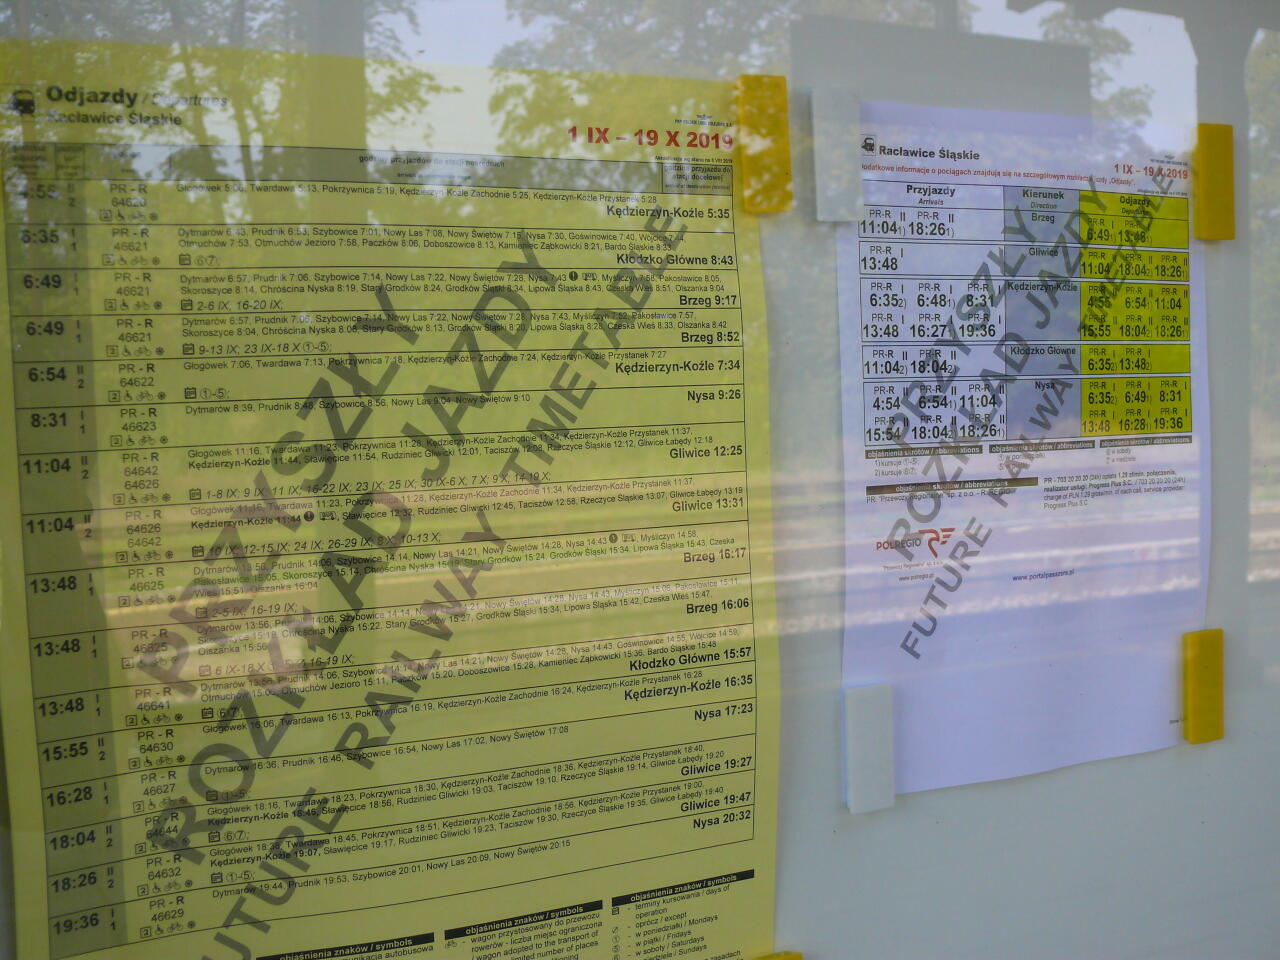 Odjazdy / Departures
Racławice Śląskie
1 IX – 19 X 2019
godziny przyjazdów do stacji pośrednich
godzina przyjazdu do
stacji docelowej
4:56 II 2 PR - R 64620 Głogówek 5:06, Twardawa 5:13, Pokrzywnica 5:19, Kędzierzyn-Koźle Zachodnie 5:25, Kędzierzyn-Koźle Przystanek 5:28
Kędzierzyn-Koźle 5:35
6:35 I 1 PR - R 46621 Dytmarów 6:43, Prudnik 6:53, Szybowice 7:01, Nowy Las 7:08, Nowy Świętów 7:15, Nysa 7:30, Goświnowice 7:40, Wójcice 7:44,
Otmuchów 7:53, Otmuchów Jezioro 7:58, Paczków 8:06, Doboszowice 8:13, Kamieniec Ząbkowicki 8:21, Bardo Śląskie 8:33
⑥⑦;
Kłodzko Główne 8:43
6:49 I 1 PR - R 46621 Dytmarów 6:57, Prudnik 7:06, Szybowice 7:14, Nowy Las 7:22, Nowy Świętów 7:28, Nysa 7:43, Myśliczyn 7:58, Pakosławice 8:05,
Skoroszyce 8:14, Chróścina Nyska 8:19, Stary Grodków 8:24, Grodków Śląski 8:34, Lipowa Śląska 8:43, Czeska Wieś 8:51, Olszanka 9:04
2-6 IX, 16-20 IX;
Brzeg 9:17
6:49 I 1 PR - R 46621 Dytmarów 6:57, Prudnik 7:06, Szybowice 7:14, Nowy Las 7:22, Nowy Świętów 7:28, Nysa 7:43, Myśliczyn 7:52, Pakosławice 7:57,
Skoroszyce 8:04, Chróścina Nyska 8:08, Stary Grodków 8:13, Grodków Śląski 8:20, Lipowa Śląska 8:28, Czeska Wieś 8:33, Olszanka 8:42
9-13 IX; 23 IX-18 X ①-⑤;
Brzeg 8:52
6:54 II 2 PR - R 64622 Głogówek 7:06, Twardawa 7:13, Pokrzywnica 7:18, Kędzierzyn-Koźle Zachodnie 7:24, Kędzierzyn-Koźle Przystanek 7:27
①-⑤;
Kędzierzyn-Koźle 7:34
8:31 I 1 PR - R 46623 Dytmarów 8:39, Prudnik 8:48, Szybowice 8:56, Nowy Las 9:04, Nowy Świętów 9:10
Nysa 9:26
11:04 II 2 PR - R 64642 64626 Głogówek 11:16, Twardawa 11:23, Pokrzywnica 11:28, Kędzierzyn-Koźle Zachodnie 11:34, Kędzierzyn-Koźle Przystanek 11:37,
Kędzierzyn-Koźle 11:44, Sławięcice 11:54, Rudziniec Gliwicki 12:01, Taciszów 12:08, Rzeczyce Śląskie 12:12, Gliwice Łabędy 12:18
1-8 IX; 9 IX 11 IX; 16-22 IX; 23 IX; 25 IX; 30 IX-6 X; 7 X; 9 X; 14-19 X;
Gliwice 12:25
11:04 II 2 PR - R 64626 64642 Głogówek 11:16, Twardawa 11:23, Pokrzywnica 11:28, Kędzierzyn-Koźle Zachodnie 11:34, Kędzierzyn-Koźle Przystanek 11:37,
Kędzierzyn-Koźle 11:44, Sławięcice 12:32, Rudziniec Gliwicki 12:45, Taciszów 12:58, Rzeczyce Śląskie 13:07, Gliwice Łabędy 13:19
10 IX; 12-15 IX; 24 IX; 26-29 IX; 8 X; 10-13 X;
Gliwice 13:31
13:48 I 1 PR - R 46625 Dytmarów 13:56, Prudnik 14:06, Szybowice 14:14, Nowy Las 14:21, Nowy Świętów 14:28, Nysa 14:43, Myśliczyn 14:58,
Pakosławice 15:05, Skoroszyce 15:14, Chróścina Nyska 15:19, Stary Grodków 15:24, Grodków Śląski 15:34, Lipowa Śląska 15:43, Czeska
Wieś 15:51, Olszanka 16:04
2-5 IX, 16-19 IX;
Brzeg 16:17
13:48 I 1 PR - R 46625 Dytmarów 13:56, Prudnik 14:06, Szybowice 14:14, Nowy Las 14:21, Nowy Świętów 14:28, Nysa 14:43, Myśliczyn 15:06, Pakosławice 15:11
Skoroszyce 15:18, Chróścina Nyska 15:22, Stary Grodków 15:27, Grodków Śląski 15:34, Lipowa Śląska 15:42, Czeska Wieś 15:47,
Olszanka 15:56
6 IX-18 X 16-19 IX;
Brzeg 16:06
13:48 I 1 PR - R 46641 Dytmarów 13:56, Prudnik 14:06, Szybowice 14:14, Nowy Las 14:21, Nowy Świętów 14:28, Nysa 14:43, Goświnowice 14:55, Wójcice 14:59,
Otmuchów 15:06, Otmuchów Jezioro 15:11, Paczków 15:20, Doboszowice 15:28, Kamieniec Ząbkowicki 15:36, Bardo Śląskie 15:48
⑥⑦;
Kłodzko Główne 15:57
15:55 II 2 PR - R 64630 Głogówek 16:06, Twardawa 16:13, Pokrzywnica 16:19, Kędzierzyn-Koźle Zachodnie 16:24, Kędzierzyn-Koźle Przystanek 16:28
Kędzierzyn-Koźle 16:35
16:28 I 1 PR - R 46627 Dytmarów 16:36, Prudnik 16:46, Szybowice 16:54, Nowy Las 17:02, Nowy Świętów 17:08
①-⑤;
Nysa 17:23
18:04 II 2 PR - R 64644 Głogówek 18:16, Twardawa 18:23, Pokrzywnica 18:30, Kędzierzyn-Koźle Zachodnie 18:36, Kędzierzyn-Koźle Przystanek 18:40,
Kędzierzyn-Koźle 18:46, Sławięcice 18:56, Rudziniec Gliwicki 19:03, Taciszów 19:10, Rzeczyce Śląskie 19:14, Gliwice Łabędy 19:20
⑥⑦;
Gliwice 19:27
18:26 II 2 PR - R 64632 Głogówek 18:38, Twardawa 18:45, Pokrzywnica 18:51, Kędzierzyn-Koźle Zachodnie 18:56, Kędzierzyn-Koźle Przystanek 19:00,
Kędzierzyn-Koźle 19:07, Sławięcice 19:17, Rudziniec Gliwicki 19:23, Taciszów 19:30, Rzeczyce Śląskie 19:35, Gliwice Łabędy 19:40
①-⑤;
Gliwice 19:47
19:36 I 1 PR - R 46629 Dytmarów 19:44, Prudnik 19:53, Szybowice 20:01, Nowy Las 20:09, Nowy Świętów 20:15
Nysa 20:32
PRZYSZŁY
ROZKŁAD JAZDY
FUTURE RAILWAY TIMETABLE
objaśnienia znaków / symbols
komunikacja autobusowa
objaśnienia znaków / symbols
- wagon przystosowany do przewozu
rowerów - liczba miejsc ograniczona
/ wagon adopted to the transport of
limited number of places
objaśnienia znaków / symbols
- terminy kursowania / days of
operation
- oprócz / except
- w poniedziałki / Mondays
- w piątki / Fridays
- w soboty / Saturdays
niedziele / Sundays
Racławice Śląskie
1 IX – 19 X 2019
Dodatkowe informacje o pociągach znajdują się na szczegółowym rozkładzie jazdy „Odjazdy”.
Przyjazdy Arrivals Kierunek Direction Odjazdy Departures
PR-R II PR-R II Brzeg PR-R I PR-R I
11:04 1) 18:26 1) 6:49 1) 13:48 1)
PR-R I Gliwice PR-R II PR-R II PR-R II
13:48 11:04 18:04 2) 18:26 1)
PR-R I PR-R I PR-R I Kędzierzyn-Koźle PR-R II PR-R II PR-R II
6:35 2) 6:48 1) 8:31 4:56 6:54 1) 11:04
PR-R I PR-R I PR-R I PR-R II PR-R II PR-R II
13:48 16:27 1) 19:36 15:55 18:04 2) 18:26 1)
PR-R II PR-R II Kłodzko Główne PR-R I PR-R I
11:04 2) 18:04 2) 6:35 2) 13:48 2)
PR-R II PR-R II PR-R II Nysa PR-R I PR-R I PR-R I
4:54 6:54 1) 11:04 6:35 2) 6:49 1) 8:31
PR-R II PR-R II PR-R II PR-R I PR-R I PR-R I
15:54 18:04 2) 18:26 1) 13:48 16:28 1) 19:36
objaśnienia skrótów / abbreviations
1) kursuje ①-⑤;
2) kursuje ⑥⑦;
objaśnienia skrótów / abbreviations
objaśnienia skrótów / abbreviations
⑥ w soboty
⑦ w niedziele
objaśnienia skrótów / abbreviations
PR "Przewozy Regionalne" sp. z o.o. - R-REGIO
PR - 703 20 20 20 (24h) opłata 1,29 zł/min. połączenia,
realizator usługi: Progress Plus S.C. / 703 20 20 20 (24h)
charge of PLN 1.29 gross/min. of each call, service provider:
Progress Plus S.C.
POLREGIO
"Przewozy Regionalne" sp. z o.o.
www.polregio.pl
www.portalpasazera.pl
PRZYSZŁY
ROZKŁAD JAZDY
FUTURE RAILWAY TIMETABLE